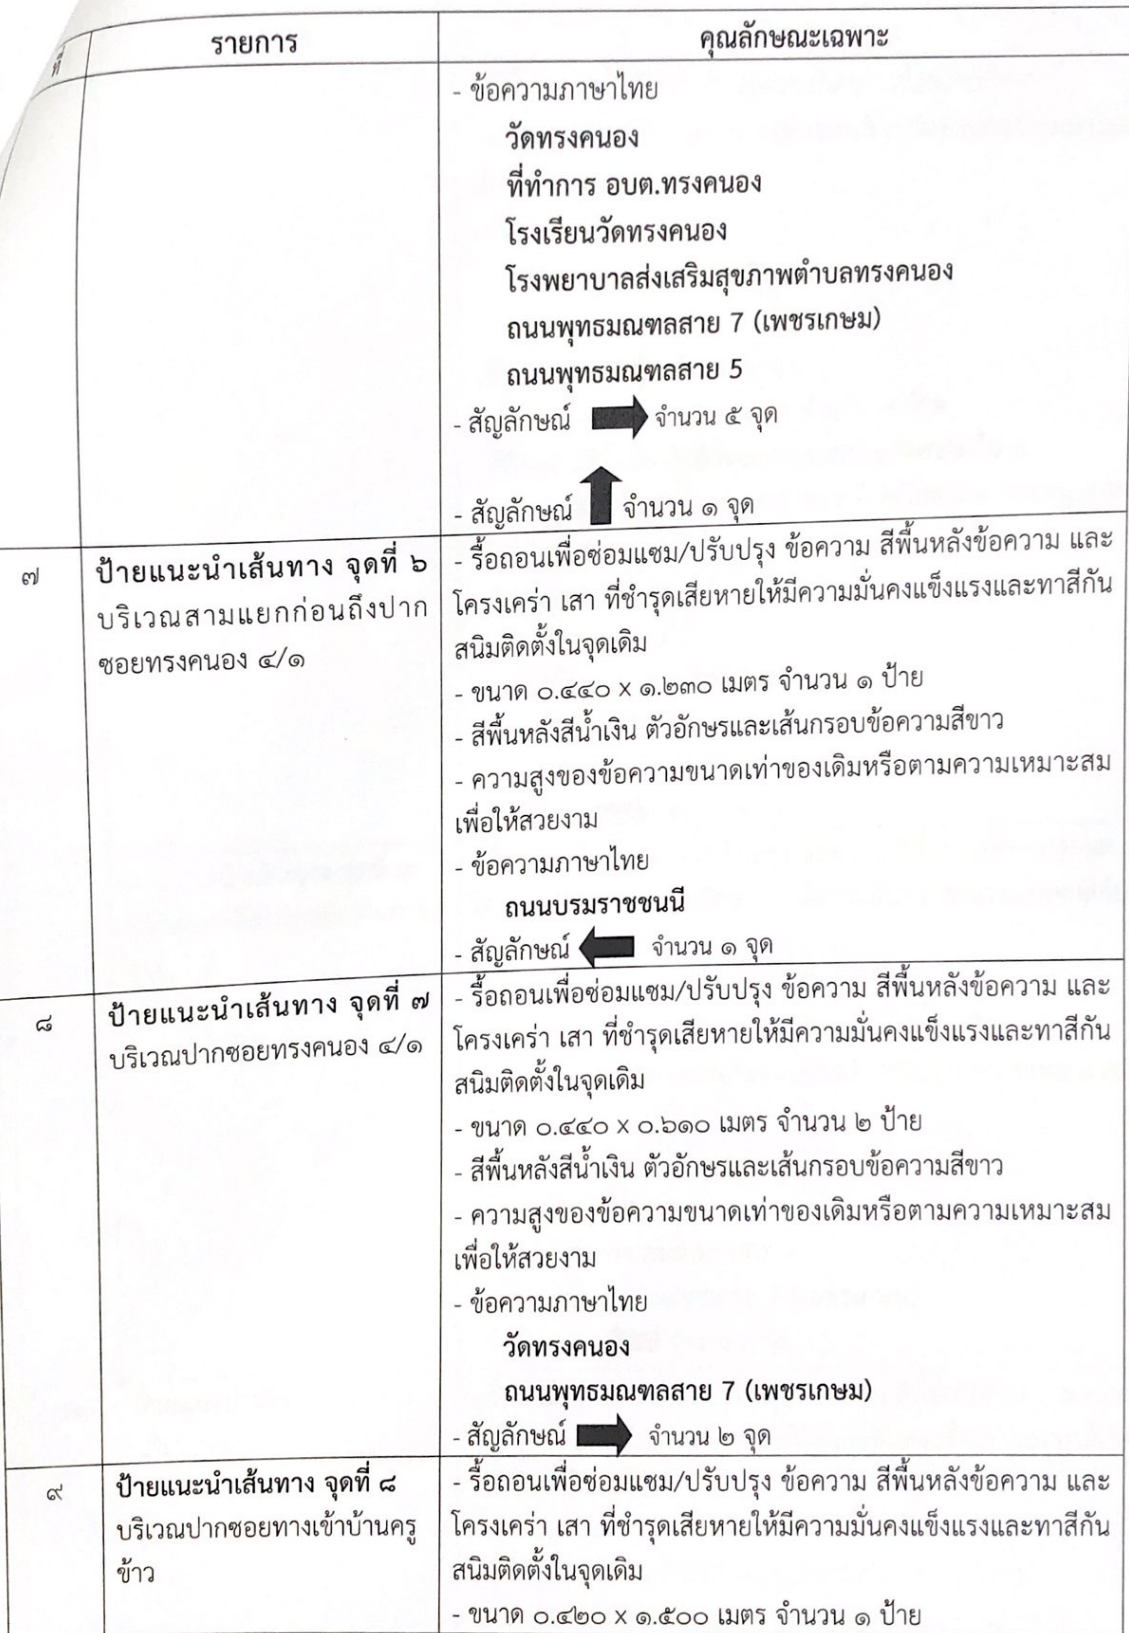 ที่ รายการ คุณลักษณะเฉพาะ
- ข้อความภาษาไทย
วัดทรงคนอง
ที่ทำการ อบต.ทรงคนอง
โรงเรียนวัดทรงคนอง
โรงพยาบาลส่งเสริมสุขภาพตำบลทรงคนอง
ถนนพุทธมณฑลสาย 7 (เพชรเกษม)
ถนนพุทธมณฑลสาย 5
- สัญลักษณ์ จำนวน ๕ จุด
- สัญลักษณ์ จำนวน ๑ จุด
๗
ป้ายแนะนำเส้นทาง จุดที่ ๖
บริเวณสามแยกก่อนถึงปาก
ซอยทรงคนอง ๔/๑
- รื้อถอนเพื่อซ่อมแซม/ปรับปรุง ข้อความ สีพื้นหลังข้อความ และ
โครงเคร่า เสา ที่ชำรุดเสียหายให้มีความมั่นคงแข็งแรงและทาสีกัน
สนิมติดตั้งในจุดเดิม
- ขนาด ๐.๔๔๐ x ๑.๒๓๐ เมตร จำนวน ๑ ป้าย
- สีพื้นหลังสีน้ำเงิน ตัวอักษรและเส้นกรอบข้อความสีขาว
- ความสูงของข้อความขนาดเท่าของเดิมหรือตามความเหมาะสม
เพื่อให้สวยงาม
- ข้อความภาษาไทย
ถนนบรมราชชนนี
- สัญลักษณ์ จำนวน ๑ จุด
๘
ป้ายแนะนำเส้นทาง จุดที่ ๗
บริเวณปากซอยทรงคนอง ๔/๑
- รื้อถอนเพื่อซ่อมแซม/ปรับปรุง ข้อความ สีพื้นหลังข้อความ และ
โครงเคร่า เสา ที่ชำรุดเสียหายให้มีความมั่นคงแข็งแรงและทาสีกัน
สนิมติดตั้งในจุดเดิม
- ขนาด ๐.๔๔๐ x ๐.๖๑๐ เมตร จำนวน ๒ ป้าย
- สีพื้นหลังสีน้ำเงิน ตัวอักษรและเส้นกรอบข้อความสีขาว
- ความสูงของข้อความขนาดเท่าของเดิมหรือตามความเหมาะสม
เพื่อให้สวยงาม
- ข้อความภาษาไทย
วัดทรงคนอง
ถนนพุทธมณฑลสาย 7 (เพชรเกษม)
- สัญลักษณ์ จำนวน ๒ จุด
๙
ป้ายแนะนำเส้นทาง จุดที่ ๘
บริเวณปากซอยทางเข้าบ้านครู
ข้าว
- รื้อถอนเพื่อซ่อมแซม/ปรับปรุง ข้อความ สีพื้นหลังข้อความ และ
โครงเคร่า เสา ที่ชำรุดเสียหายให้มีความมั่นคงแข็งแรงและทาสีกัน
สนิมติดตั้งในจุดเดิม
- ขนาด ๐.๔๒๐ x ๑.๕๐๐ เมตร จำนวน ๑ ป้าย